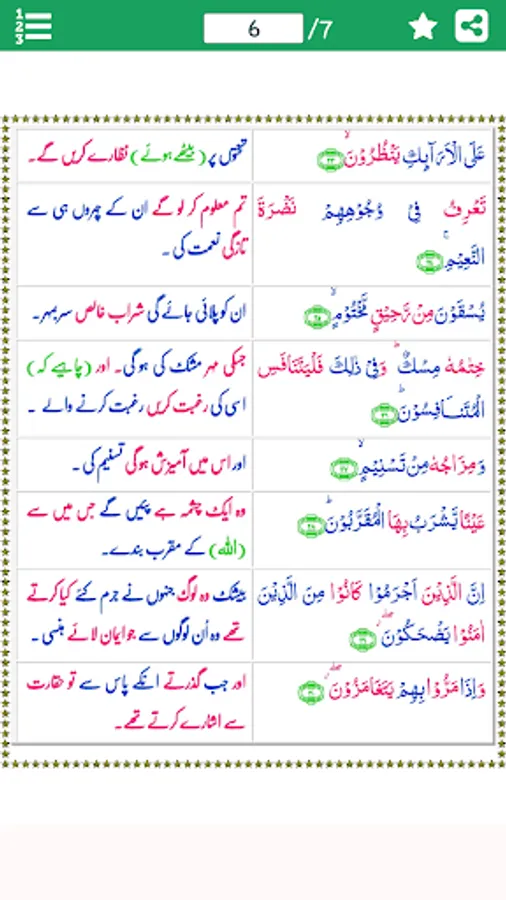 1
2
3
6 /7
عَلَى الْاَرَآىِٕكِ يَنْظُرُوْنَۙ ۲۳
تختوں پر (بیٹھے ہوئے) نظارے کریں گے۔
تَعْرِفُ فِیْ وُجُوْهِهِمْ نَضْرَةَ
النَّعِیْمِۚ ۲۴
تم معلوم کر لو گے ان کے چہروں ہی سے
تازگی نعمت کی ۔
یُسْقَوْنَ مِنْ رَّحِیْقٍ مَّخْتُوْمٍۙ ۲۵
ان کو پلائی جائے گی شراب خالص سربمہر۔
خِتٰمُهٗ مِسْكٌؕ وَفِیْ ذٰلِكَ فَلْیَتَنَافَسِ
الْمُتَنَافِسُوْنَؕ ۲۶
جسکی مہر مشک کی ہوگی۔ اور (چاہیے کہ)
اسی کی رغبت کریں رغبت کرنے والے ۔
وَمِزَاجُهٗ مِنْ تَسْنِیْمٍۙ ۲۷
اور اس میں آمیزش ہوگی تسنیم کی ۔
عَیْنًا یَّشْرَبُ بِهَا الْمُقَرَّبُوْنَؕ ۲۸
وہ ایک چشمہ ہے پئیں گے جس میں سے
(اللہ) کے مقرب بندے۔
اِنَّ الَّذِیْنَ اَجْرَمُوْا كَانُوْا مِنَ الَّذِیْنَ
اٰمَنُوْا یَضْحَكُوْنَؗۖ ۲۹
بیشک وہ لوگ جنہوں نے جرم کئے کیا کرتے
تھے وہ اُن لوگوں سے جو ایمان لائے ہنسی ۔
وَاِذَا مَرُّوْا بِهِمْ یَتَغَامَزُوْنَؗۖ ۳۰
اور جب گذرتے انکے پاس سے تو حقارت
سے اشارے کرتے تھے۔